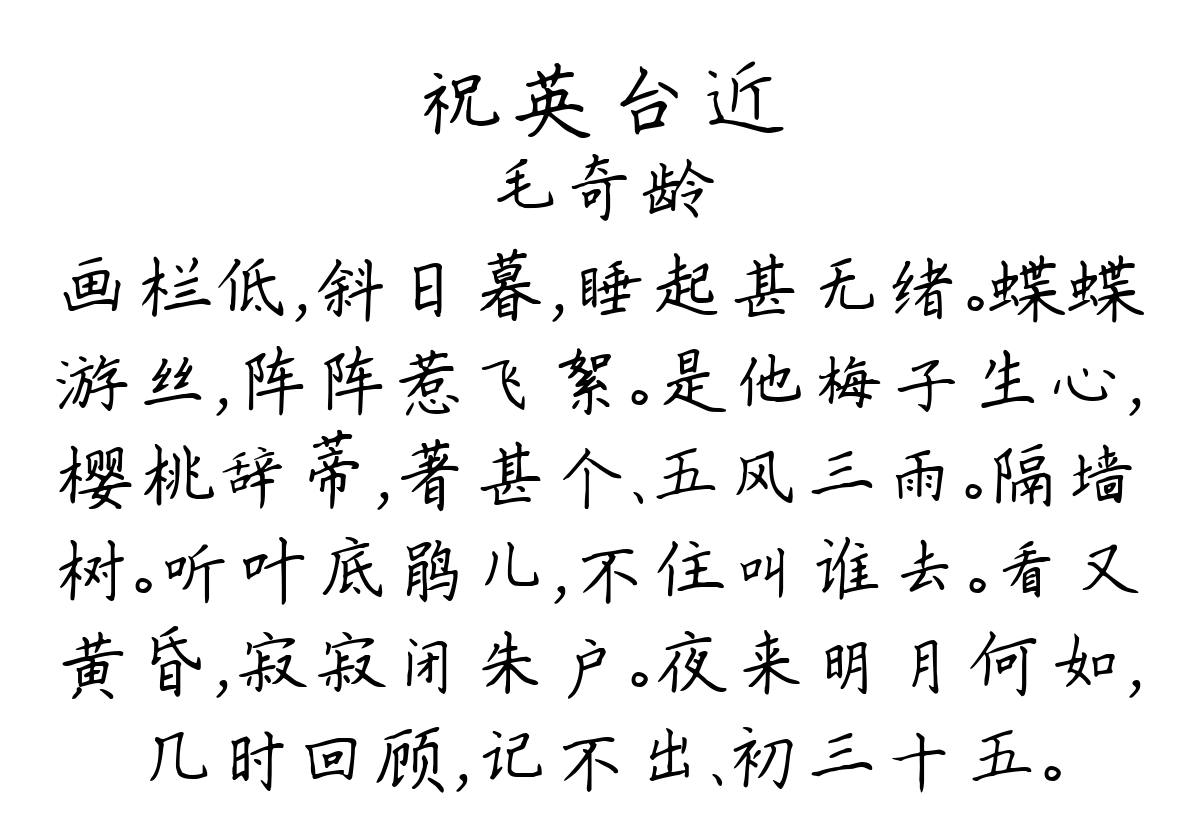 祝英台近
毛奇龄
画栏低,斜日暮,睡起甚无绪。蝶蝶
游丝,阵阵惹飞絮。是他梅子生心,
樱桃辞蒂,著甚个、五风三雨。隔墙
树。听叶底鹃儿,不住叫谁去。看又
黄昏,寂寂闭朱户。夜来明月何如,
几时回顾,记不出、初三十五。